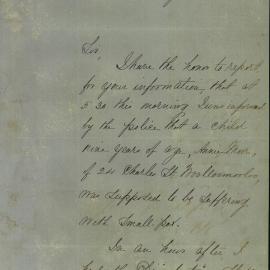 Sir
I have the honor to report
for your information, that at
5.30 this morning I was informed
by the police that a child
nine years of age, Annie
of Charles St Woolloomooloo,
was supposed to be suffering
with small pox.
In an hour after I